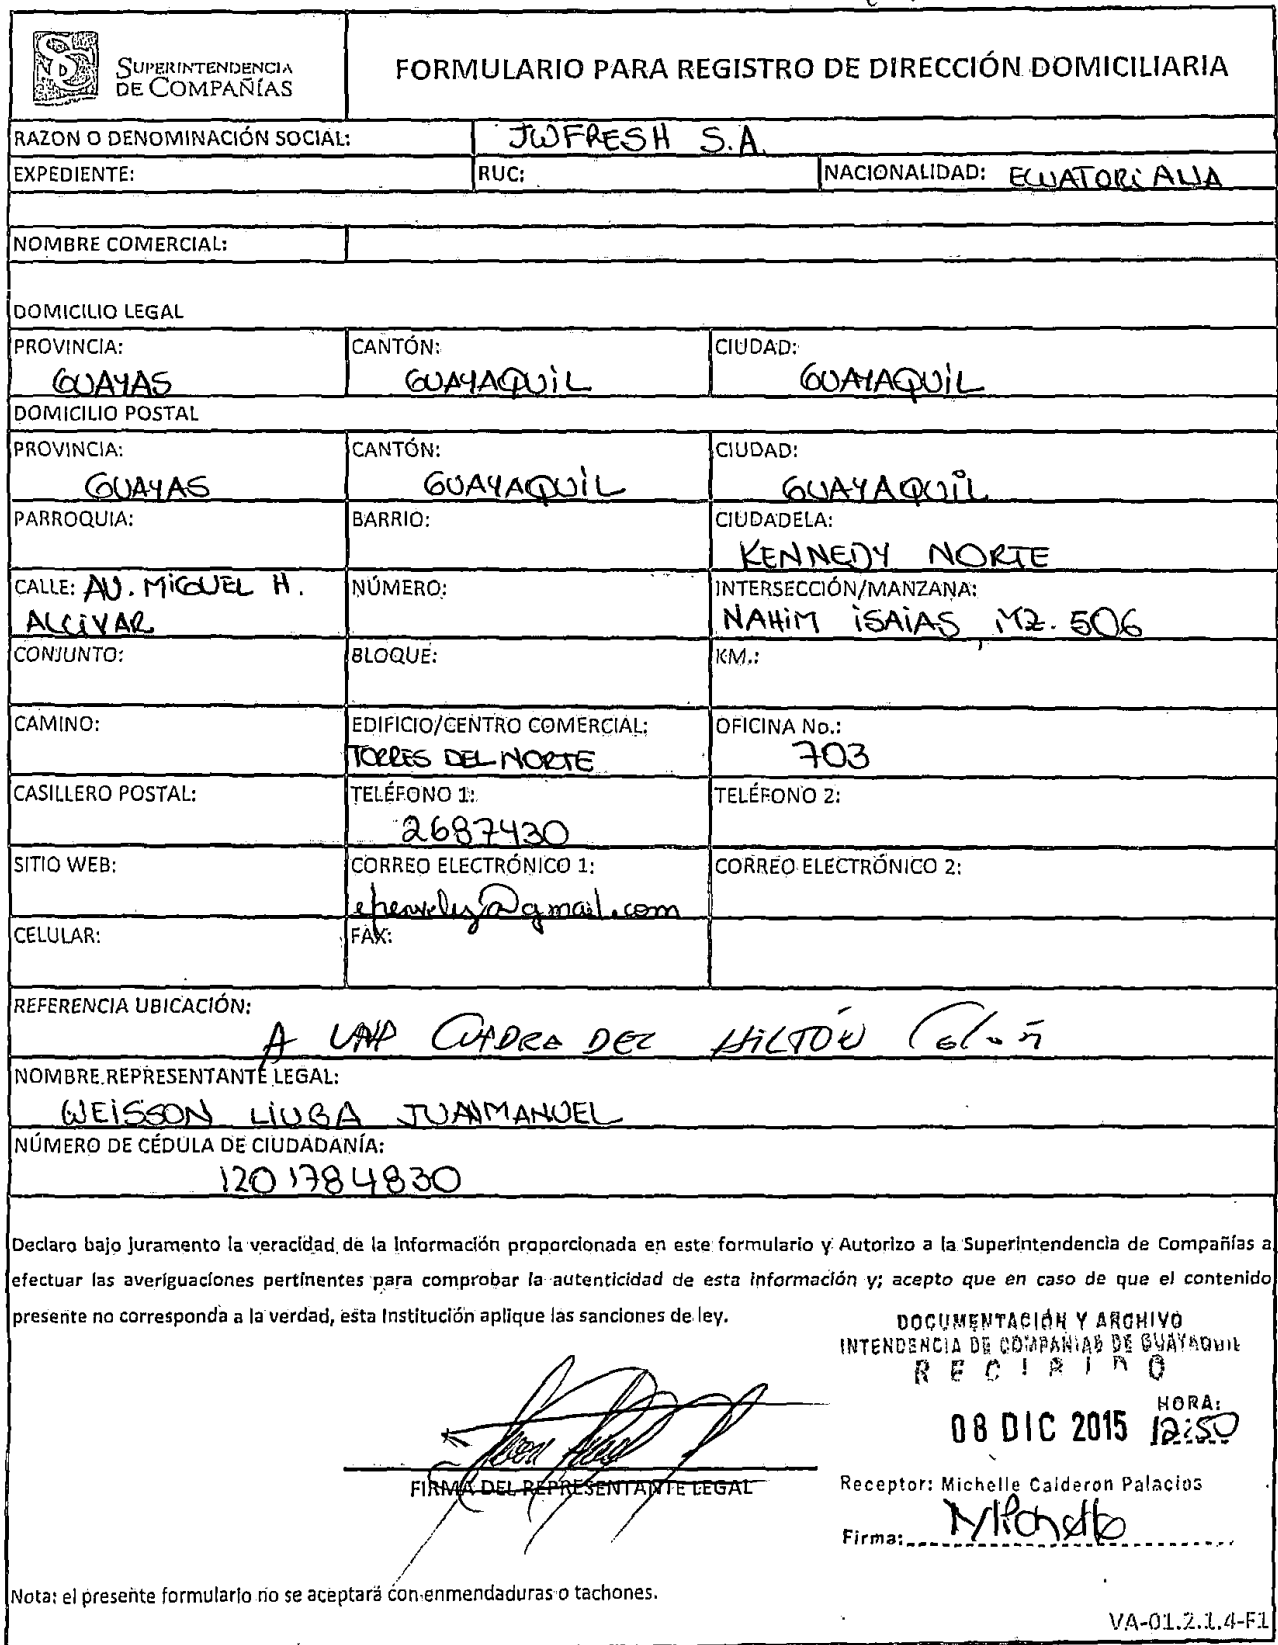 SUPERINTENDENCIA
DE COMPAÑÍAS
FORMULARIO PARA REGISTRO DE DIRECCIÓN DOMICILIARIA
RAZON O DENOMINACIÓN SOCIAL: JWFRESH S.A.
EXPEDIENTE: RUC: NACIONALIDAD: ECUATORIANA
NOMBRE COMERCIAL:
DOMICILIO LEGAL
PROVINCIA: CANTÓN: CIUDAD:
GUAYAS GUAYAQUIL GUAYAQUIL
DOMICILIO POSTAL
PROVINCIA: CANTÓN: CIUDAD:
GUAYAS GUAYAQUIL GUAYAQUIL
PARROQUIA: BARRIO: CIUDADELA:
KENNEDY NORTE
CALLE: AV. MIGUEL H. NÚMERO: INTERSECCIÓN/MANZANA:
ALCIVAR NAHIM ISAIAS, MZ. 506
CONJUNTO: BLOQUE: KM.:
CAMINO: EDIFICIO/CENTRO COMERCIAL: OFICINA No.:
TORRES DEL NORTE 703
CASILLERO POSTAL: TELÉFONO 1: TELÉFONO 2:
2687430
SITIO WEB: CORREO ELECTRÓNICO 1: CORREO ELECTRÓNICO 2:
@gmail.com
CELULAR: FAX:
REFERENCIA UBICACIÓN:
A UNA CUADRA DEL HILTON Colón
NOMBRE REPRESENTANTE LEGAL:
WEISSON LIUBA JUAN MANUEL
NÚMERO DE CÉDULA DE CIUDADANÍA:
1201784830
Declaro bajo juramento la veracidad de la información proporcionada en este formulario y Autorizo a la Superintendencia de Compañías a
efectuar las averiguaciones pertinentes para comprobar la autenticidad de esta información y; acepto que en caso de que el contenido
presente no corresponda a la verdad, esta Institución aplique las sanciones de ley.
DOCUMENTACIÓN Y ARCHIVO
INTENDENCIA DE COMPAÑIAS DE GUAYAQUIL
RECIBIDO
HORA:
08 DIC 2015 12:50
FIRMA DEL REPRESENTANTE LEGAL
Receptor: Michelle Calderon Palacios
Firma: Michelle
Nota: el presente formulario no se aceptará con enmendaduras o tachones.
VA-01.2.1.4-F1